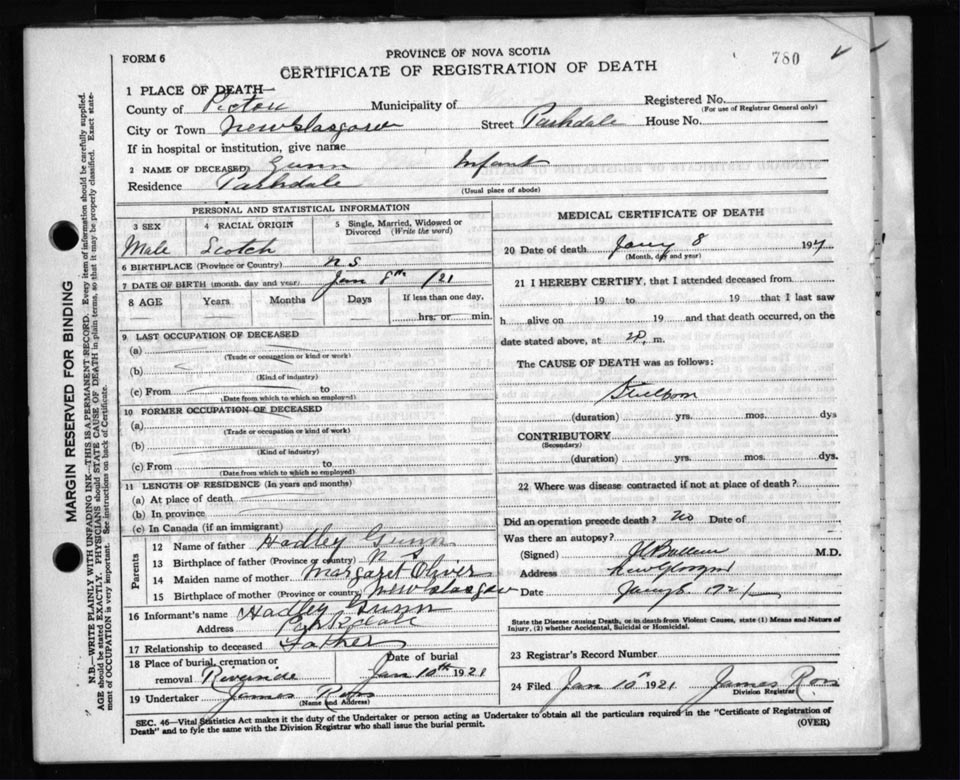 FORM 6
PROVINCE OF NOVA SCOTIA
780
CERTIFICATE OF REGISTRATION OF DEATH
1 PLACE OF DEATH
County of Pictou Municipality of Registered No.
(For use of Registrar General only)
City or Town New Glasgow Street Parkdale House No.
If in hospital or institution, give name
2 NAME OF DECEASED Gunn Infant
Residence Parkdale (Usual place of abode)
PERSONAL AND STATISTICAL INFORMATION
3 SEX 4 RACIAL ORIGIN 5 Single, Married, Widowed or Divorced (Write the word)
Male Scotch
6 BIRTHPLACE (Province or Country) N S
7 DATE OF BIRTH (month, day and year) Jan 8th /21
8 AGE Years Months Days If less than one day,
hrs. or min.
9 LAST OCCUPATION OF DECEASED
(a)
(Trade or occupation or kind or work)
(b)
(Kind of industry)
(c) From to
(Date from which to which so employed)
10 FORMER OCCUPATION OF DECEASED
(a)
(Trade or occupation or kind of work)
(b)
(Kind of industry)
(c) From to
(Date from which to which so employed)
11 LENGTH OF RESIDENCE (In years and months)
(a) At place of death
(b) In province
(c) In Canada (if an immigrant)
Parents
12 Name of father Hadley Gunn
13 Birthplace of father (Province or country) N S
14 Maiden name of mother Margaret Oliver
15 Birthplace of mother (Province or country) New Glasgow
16 Informant's name Hadley Gunn
Address Parkdale
17 Relationship to deceased Father
18 Place of burial, cremation or removal Riverside Date of burial Jan 10th 1921
19 Undertaker James Ross
(Name and Address)
MEDICAL CERTIFICATE OF DEATH
20 Date of death Jany 8 192
(Month, day and year)
21 I HEREBY CERTIFY, that I attended deceased from
19 to 19 that I last saw
h alive on 19 and that death occurred, on the
date stated above, at m.
The CAUSE OF DEATH was as follows:
Stillborn
(duration) yrs. mos. dys
CONTRIBUTORY
(Secondary)
(duration) yrs. mos. dys.
22 Where was disease contracted if not at place of death?
Did an operation precede death? no Date of
Was there an autopsy?
(Signed) M.D.
Address New Glasgow
Date Jany 8 1921
State the Disease causing Death, or in death from Violent Causes, state (1) Means and Nature of
Injury, (2) whether Accidental, Suicidal or Homicidal.
23 Registrar's Record Number
24 Filed Jan 10th 1921 James Ross
Division Registrar
SEC. 46—Vital Statistics Act makes it the duty of the Undertaker or person acting as Undertaker to obtain all the particulars required in the "Certificate of Registration of
Death" and to fyle the same with the Division Registrar who shall issue the burial permit.
(OVER)
MARGIN RESERVED FOR BINDING
N.B.—WRITE PLAINLY WITH UNFADING INK—THIS IS A PERMANENT RECORD. Every item of information should be carefully supplied.
AGE should be stated EXACTLY. PHYSICIANS should STATE CAUSE OF DEATH in plain terms, so that it may be properly classified. Exact state-
ment of OCCUPATION is very important. See instructions on back of Certificate.